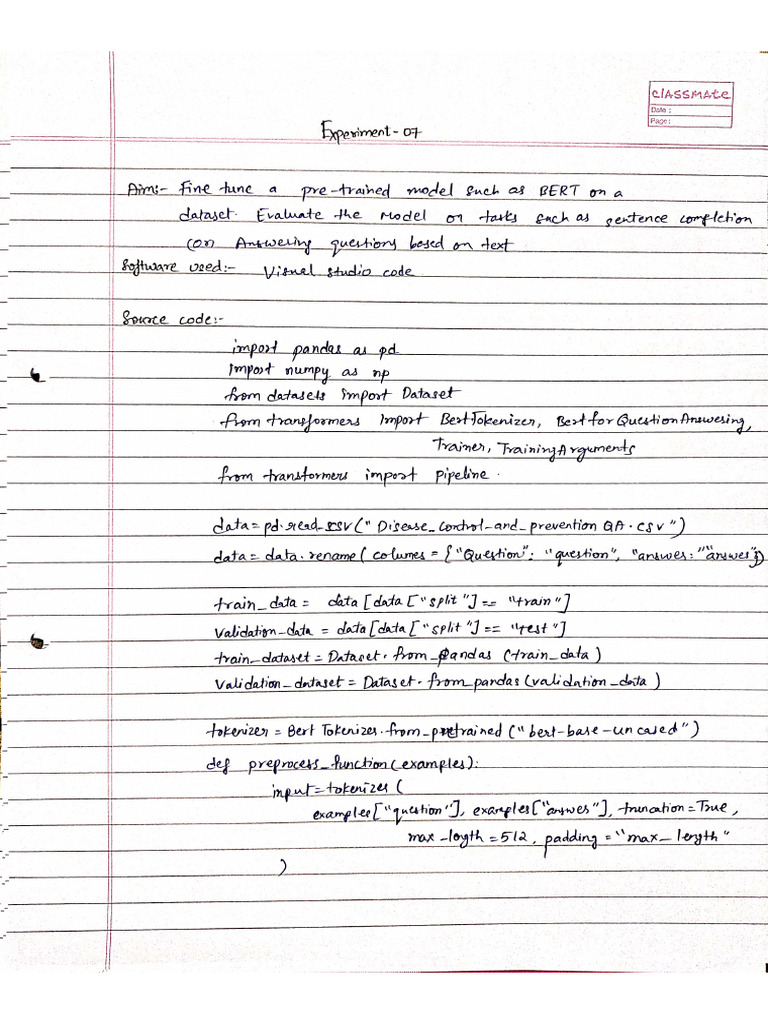 classmate
Date :
Page :
Experiment-07
Aim:- Fine tune a pre-trained model such as BERT on a
dataset. Evaluate the model on tasks such as sentence completion
(or) Answering questions based on text
Software used:- Visual studio code
Source code:-
import pandas as pd
import numpy as np
from datasets import Dataset
from transformers import BertTokenizer, BertforQuestionAnswering,
Trainer, TrainingArguments
from transformers import pipeline.
data=pd.read_csv("Disease_control_and_prevention QA.csv")
data=data.rename(columes={"Question": "question", "answer:" "answer"})
train_data = data[data["split"]== "train"]
validation_data = data[data["split"]== "test"]
train_dataset = Dataset.from_pandas (train_data)
validation_dataset = Dataset.from_pandas(validation_data)
tokenizer = Bert Tokenizer.from_pretrained ("bert-base-uncased")
def preprocess_function(examples):
input=tokenizer(
examples["question"], examples["answer"], truncation=True,
max_length=512, padding="max_length"
)